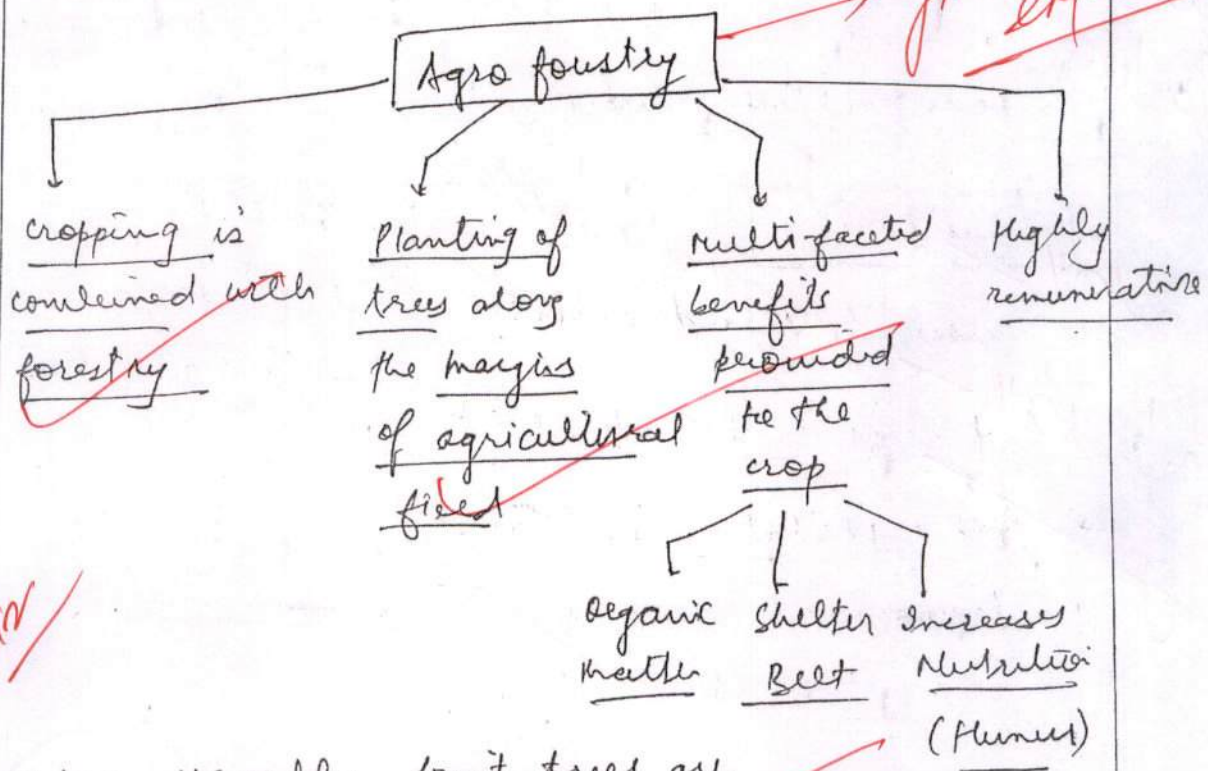 Agro foustry
cropping is
combined with
forestry
Planting of
trees along
the margins
of agricultural
field
Multifaceted
benefits
provided
to the
crop
Highly
remunerative
Organic
Matter
Shelter
Belt
Increases
Nutrition
(Humus)
fruit trees are